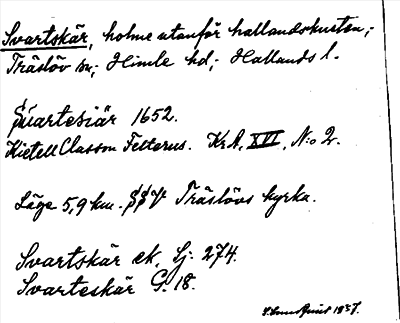 Svartskär, holme utanför hallandskusten;
Träslöv sn; Himle hd; Hallands l.
Suartesiär 1652.
Kietell Classon Felterus. Kr.A. XVI, N:o 2.
Läge 5,9 km. SSV Träslövs kyrka.
Svartskär ek. Sj. 274.
Svarteskär G. 18.
1937.